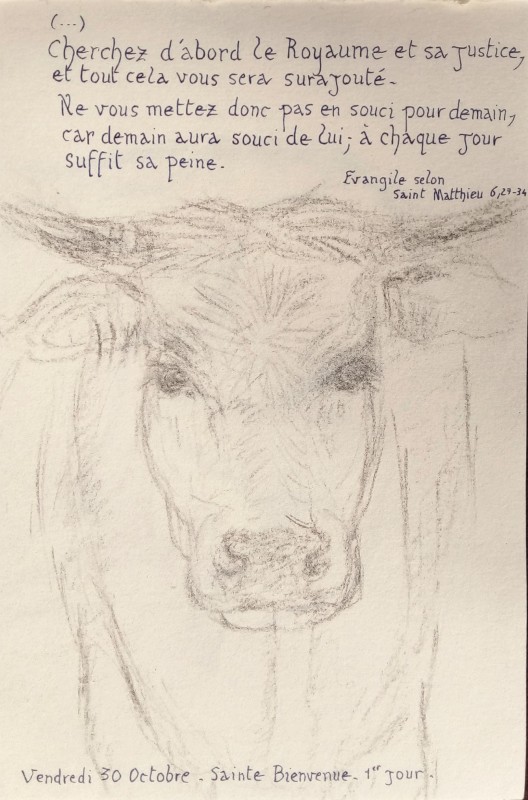 (...)
Cherchez d'abord le Royaume et sa justice,
et tout cela vous sera surajouté.
Ne vous mettez donc pas en souci pour demain,
car demain aura souci de lui; à chaque jour
suffit sa peine.
Evangile selon
Saint Matthieu 6,29-34
Vendredi 30 Octobre - Sainte Bienvenue - 1er jour.